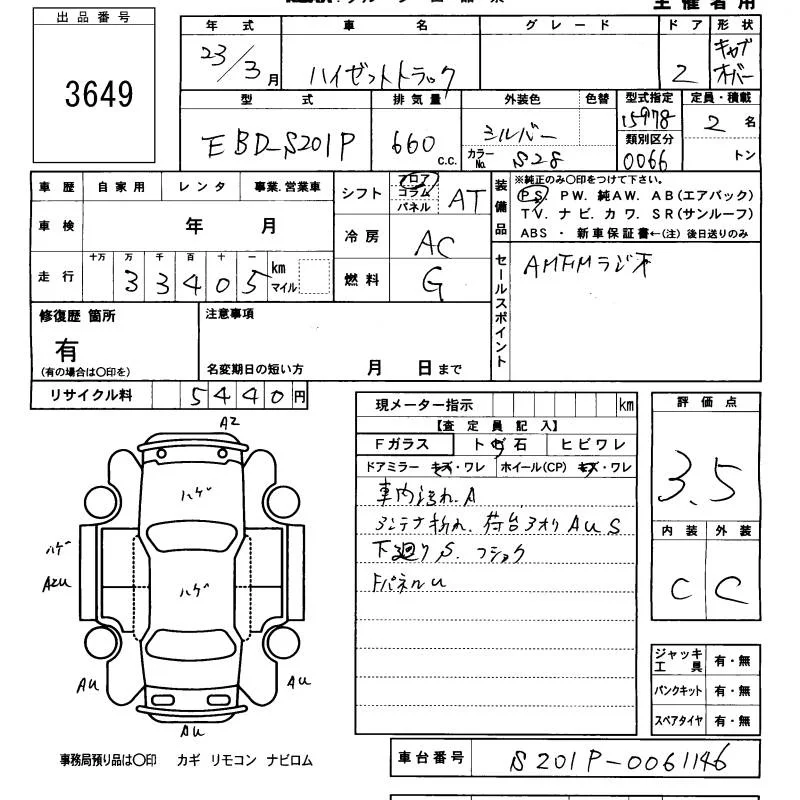 主催者用
出品番号
3649
年式 車名 グレード ドア 形状
23/3月 ハイゼットトラック 2 キャブオーバー
型式 排気量 外装色 色替 型式指定 定員・積載
EBD-S201P 660 c.c. シルバー 15978 2名
カラーNo. S28 類別区分 0066 トン
車歴 自家用 レンタ 事業.営業車
車検 年 月
走行 十万 万 千 百 十 一
33405 km マイル
シフト フロア コラム パネル AT
冷房 AC
燃料 G
装備品
※純正のみ〇印をつけて下さい。
PS. PW. 純AW. AB(エアバック)
TV. ナビ. カワ. SR(サンルーフ)
ABS ・ 新車保証書←(注) 後日送りのみ
セールスポイント
AMFMラジオ
修復歴 箇所
有
(有の場合は〇印を)
注意事項
名変期日の短い方 月 日まで
リサイクル料 5440円
現メーター指示 km
【査定員記入】
Fガラス トビ石 ヒビワレ
ドアミラー キズ・ワレ ホイール(CP) キズ・ワレ
車内汚れ.A
アンテナ折れ. 荷台アオリAUS
下廻りS.
FパネルU
評価点
3.5
内装 外装
C C
ジャッキ工具 有・無
パンクキット 有・無
スペアタイヤ 有・無
A2
ハゲ
ハゲ
ハゲ
A2U
AU
AU
AU
事務局預り品は〇印 カギ リモコン ナビロム
車台番号 S201P-0061146